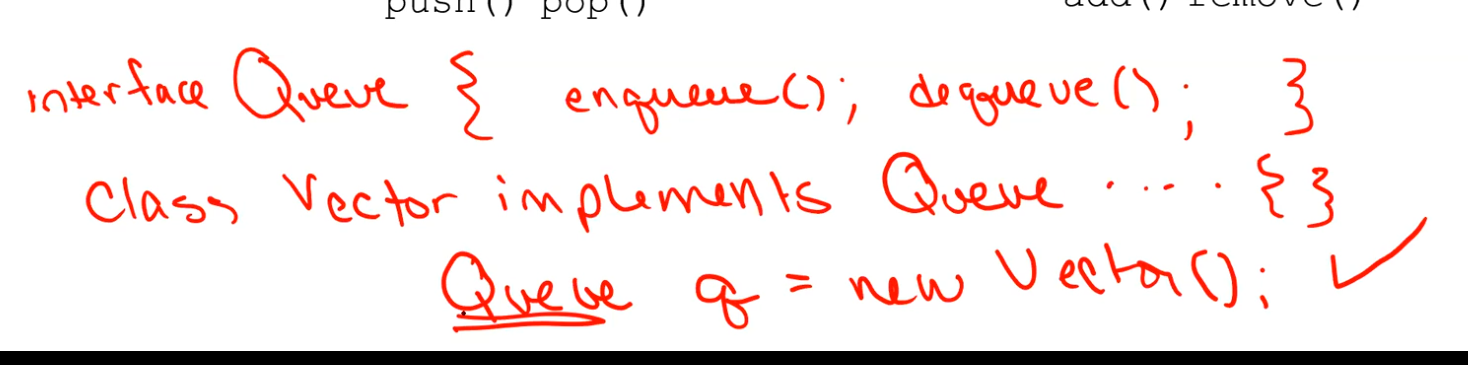 push() pop() add() remove()
interface Queue { enqueue(); dequeue(); }
class Vector implements Queue ..... {}
Queue q = new Vector(); ✓